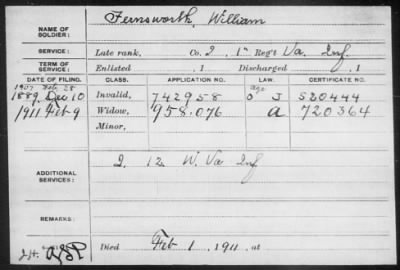 NAME OF SOLDIER: Fernsworth, William
SERVICE: Late rank, Co. I, 1st Reg't Va. Inf
TERM OF SERVICE: Enlisted , 1 Discharged , 1
DATE OF FILING. CLASS. APPLICATION NO. LAW. CERTIFICATE NO.
1907 Feb 28 age
1889 Dec 10 Invalid, 742958 J 520444
1911 Feb 9 Widow, 958.076 a 720364
Minor,
ADDITIONAL SERVICES: I. 12. W. Va Inf
REMARKS:
Died Feb 1 1911, at